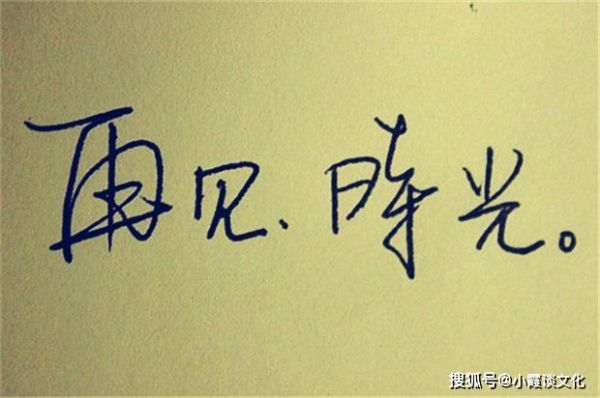 再见、時光。
搜狐号@小霞谈文化